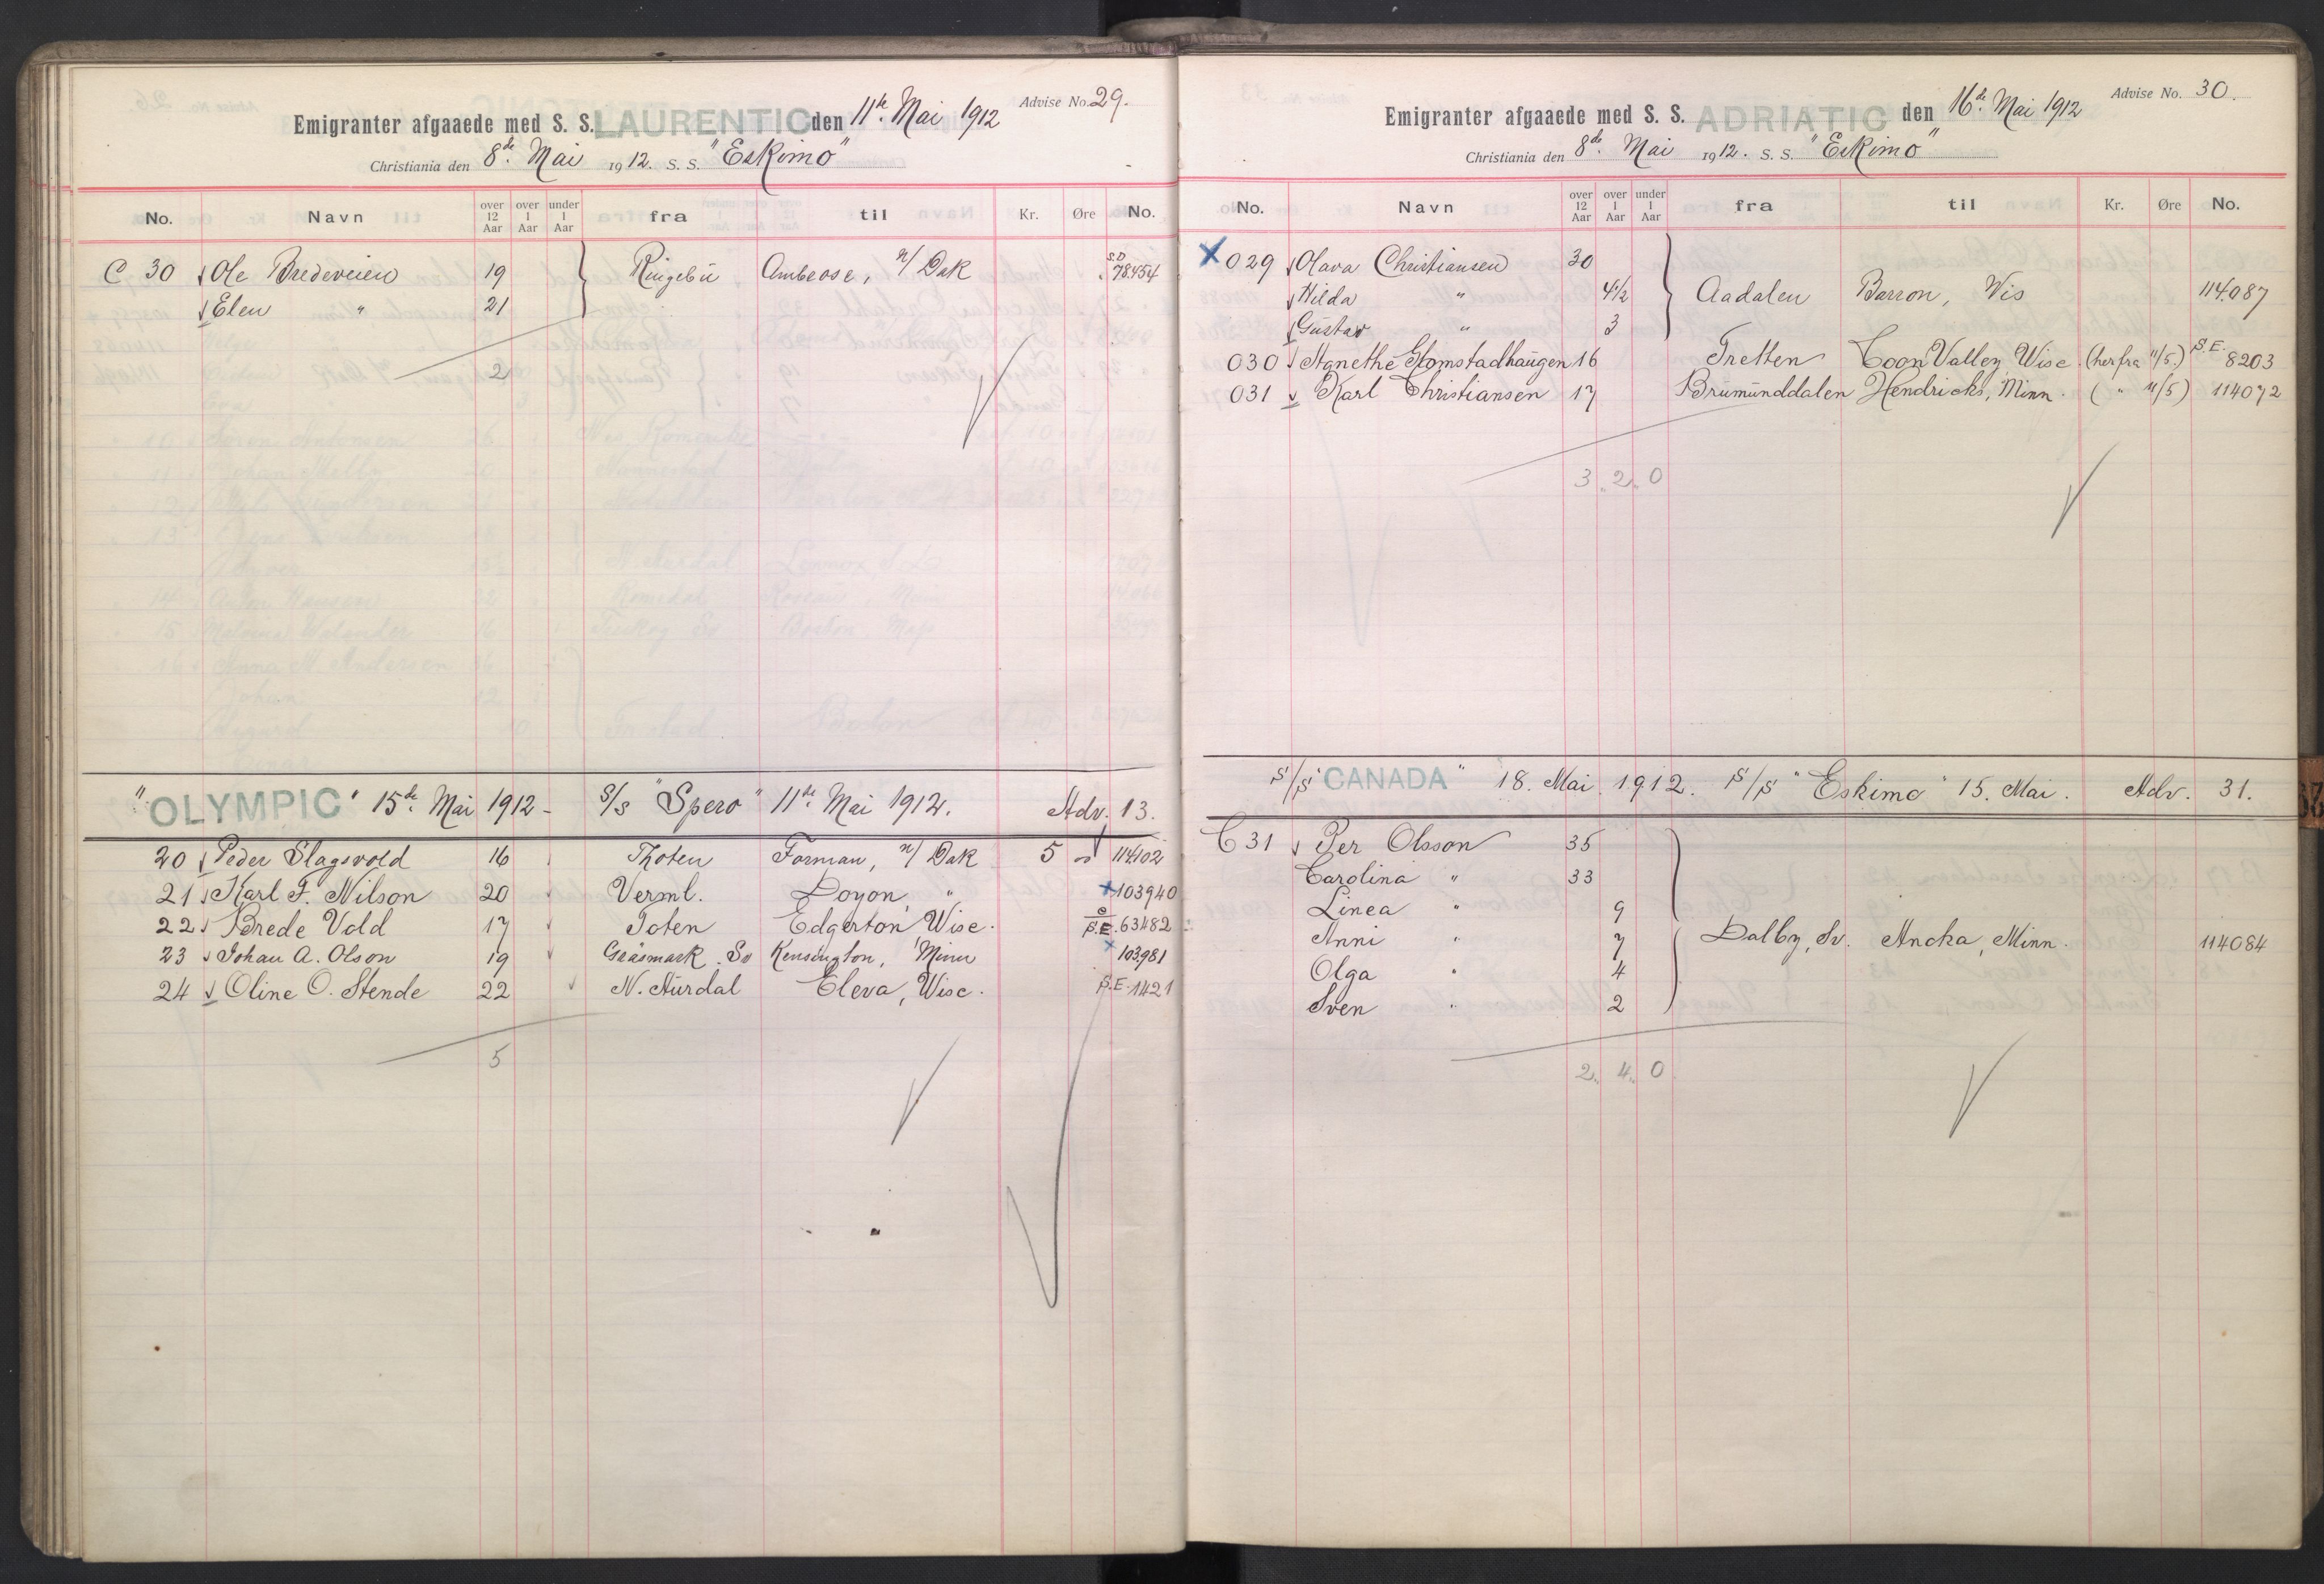 Advise No. 29.
Emigranter afgaaede med S. S. LAURENTIC den 11te Mai 1912
Christiania den 8de Mai 1912. S. S. "Eskimo"
No. Navn over 12 Aar over 1 Aar under 1 Aar fra til Kr. Øre No.
C 30 Ole Bredeveien 19 Ringebu Ambrose, N/Dak S.D 78454
Elen " 21
2
"OLYMPIC" 15de Mai 1912 - S/S "Spero" 11te Mai 1912. Adv. 13.
20 Peder Slagsvold 16 Thoten Forman, N/Dak 5 114102
21 Karl F. Nilson 20 Verml. Doyon, " x103940
22 Brede Vold 17 Toten Edgerton Wisc. S.E. 63482
23 Johan A. Olson 19 Gräsmark. Sv Kensington, Minn x 103981
24 Oline O. Stende 22 N. Aurdal Eleva, Wisc. S.E. 1421
5
Advise No. 30.
Emigranter afgaaede med S. S. ADRIATIC den 16de Mai 1912
Christiania den 8de Mai 1912. S. S. "Eskimo"
No. Navn over 12 Aar over 1 Aar under 1 Aar fra til Kr. Øre No.
x 029 Olava Christiansen 30
Hilda " 4½ Aadalen Barron, Wis 114087
Gustav " 3
030 Agnethe Glomstadhaugen 16 Tretten Coon Valley Wisc. (herfra 11/5) S.E. 8203
031 Karl Christiansen 17 Brumunddalen Hendricks, Minn. ( " 11/5) 114072
3. 2. 0
S/S "CANADA" 18. Mai 1912. S/S "Eskimo" 15. Mai. Adv. 31.
C 31 Per Olsson 35
Carolina " 33
Linea " 9
Anni " 7 Dalby, Sv. Anoka, Minn. 114084
Olga " 4
Sven " 2
2. 4. 0